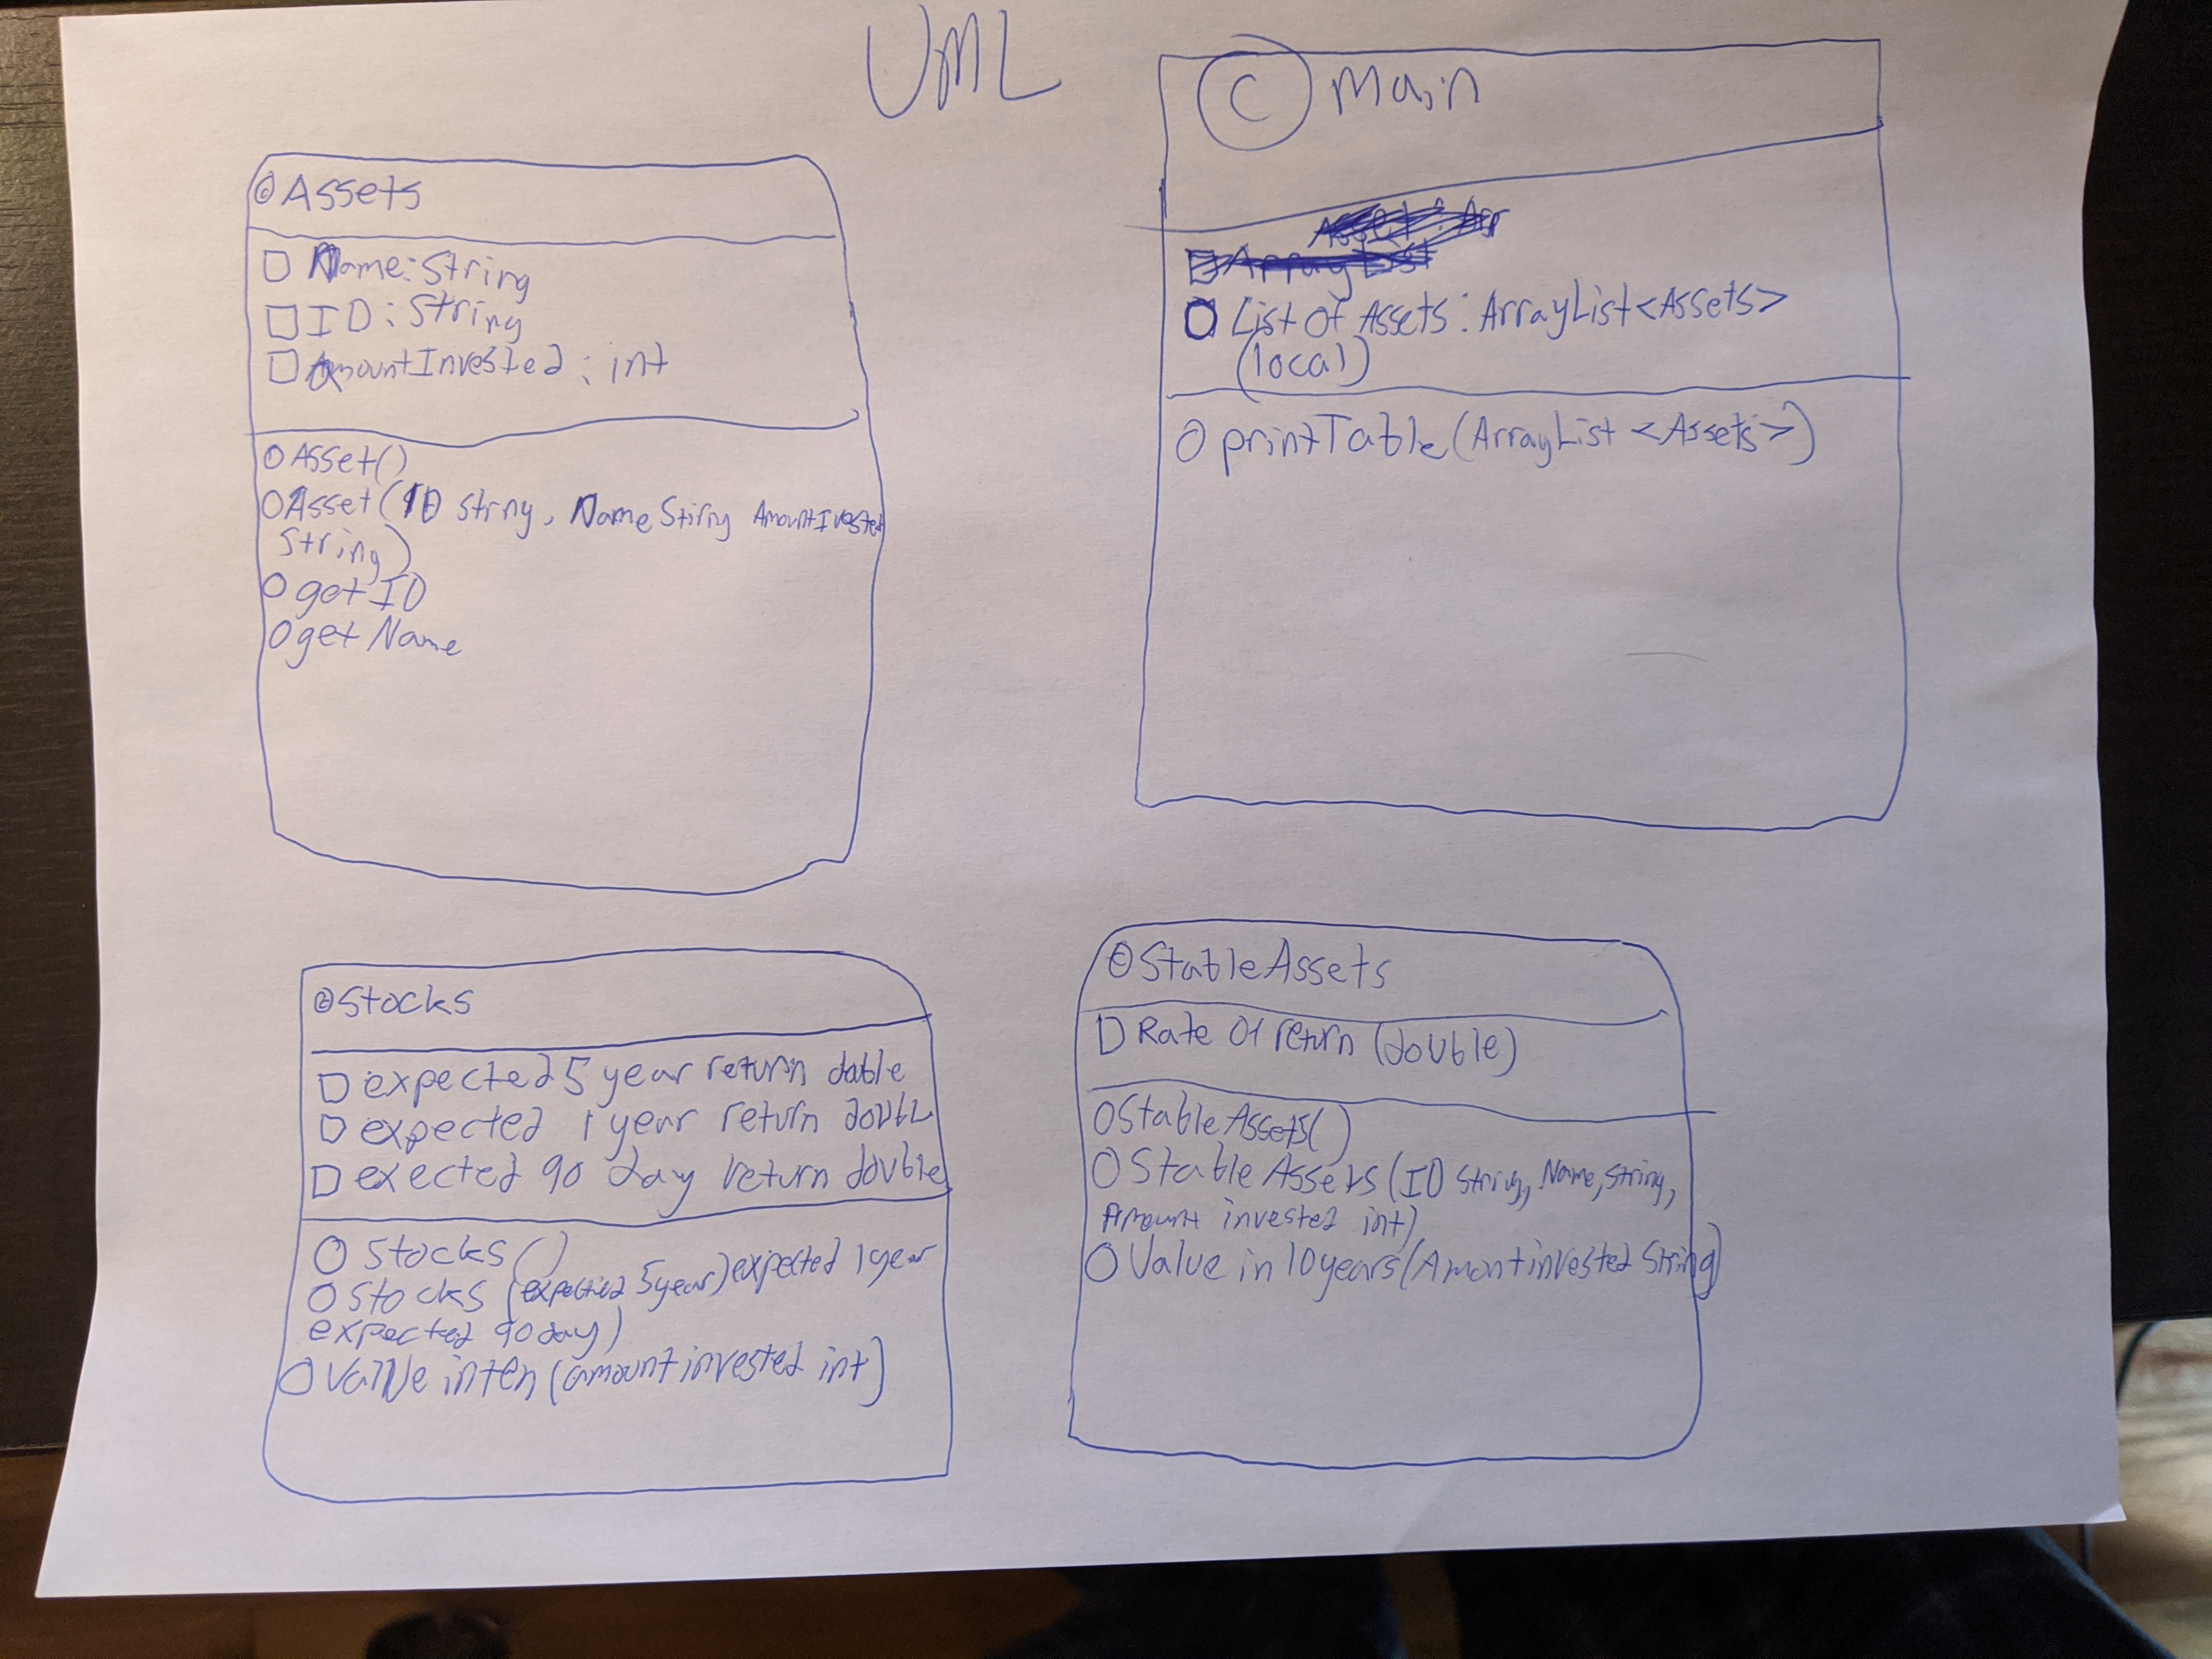 UML
© Assets
Name: String
ID: String
AmountInvested: int
Asset()
Asset(ID Strny, Name Stirny AmountInvested
String)
getID
getName
© Main
List of Assets: ArrayList<Assets>
(local)
printTable(ArrayList <Assets>)
© Stocks
expected 5 year return dable
expected 1 year return doubl
exected 90 day return double
Stocks()
Stocks (expected 5year) expected 1year
expected 90 day)
Value inten (amount invested int)
© StableAssets
Rate of return (double)
StableAssets()
StableAssets(ID String, Name, String,
Amount invested int)
Value in 10 years (Amont invested String)